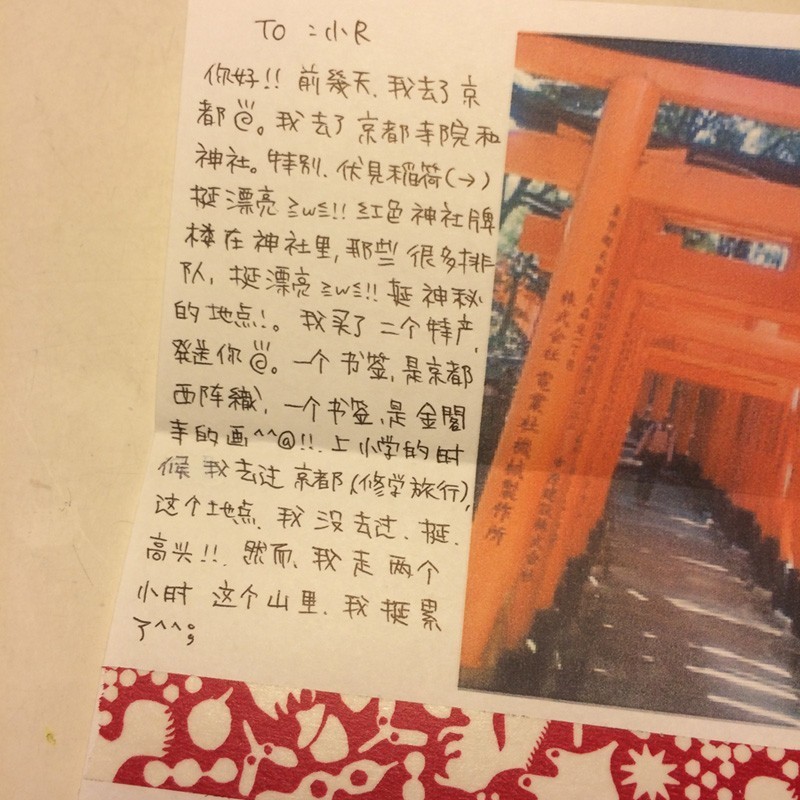 TO:小R
你好!! 前幾天、我去了京
都。我去了京都寺院和
神社。特别、伏見稲荷(→)
挺漂亮≧w≦!! 红色神社牌
楼在神社里,那些很多排
队,挺漂亮≧w≦!! 挺神秘
的地点!。我买了二个特产,
発送你。一个书签,是京都
西阵織、一个书签,是金閣
寺的画^^@!!、上小学的时
候我去过京都(修学旅行),
这个地点、我没去过、挺、
高头!!、然而、我走两个
小时这个山里、我挺累
了^^;
株式会社 電業社機械製作所